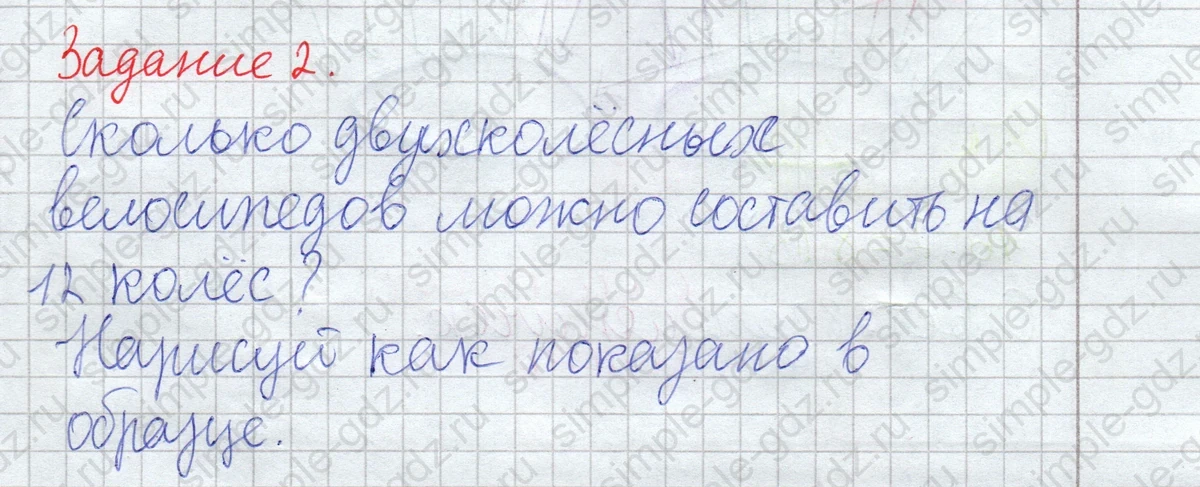 Задание 2.
Сколько двухколёсных
велосипедов можно составить на
12 колёс?
Нарисуй как показано в
образце.